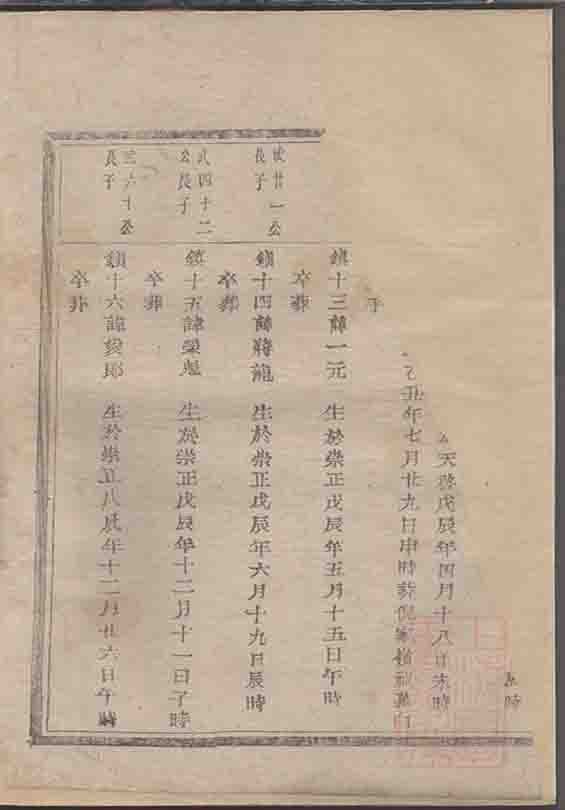 時
天啓戊辰年四月十八日未時
乙丑年七月廿九日申時葬倪家
子
鎮十三諱一元 生於崇正戊辰年五月十五日午時
卒葬
廿一公長子
鎮十四諱蔣龍 生於崇正戊辰年六月十九日辰時
卒葬
弍四十二公長子
鎮十五諱榮 生於崇正戊辰年十二月十一日子時
卒葬
三六十公長子
鎮十六諱俊郎 生於崇正戊辰年十二月廿六日午時
卒葬